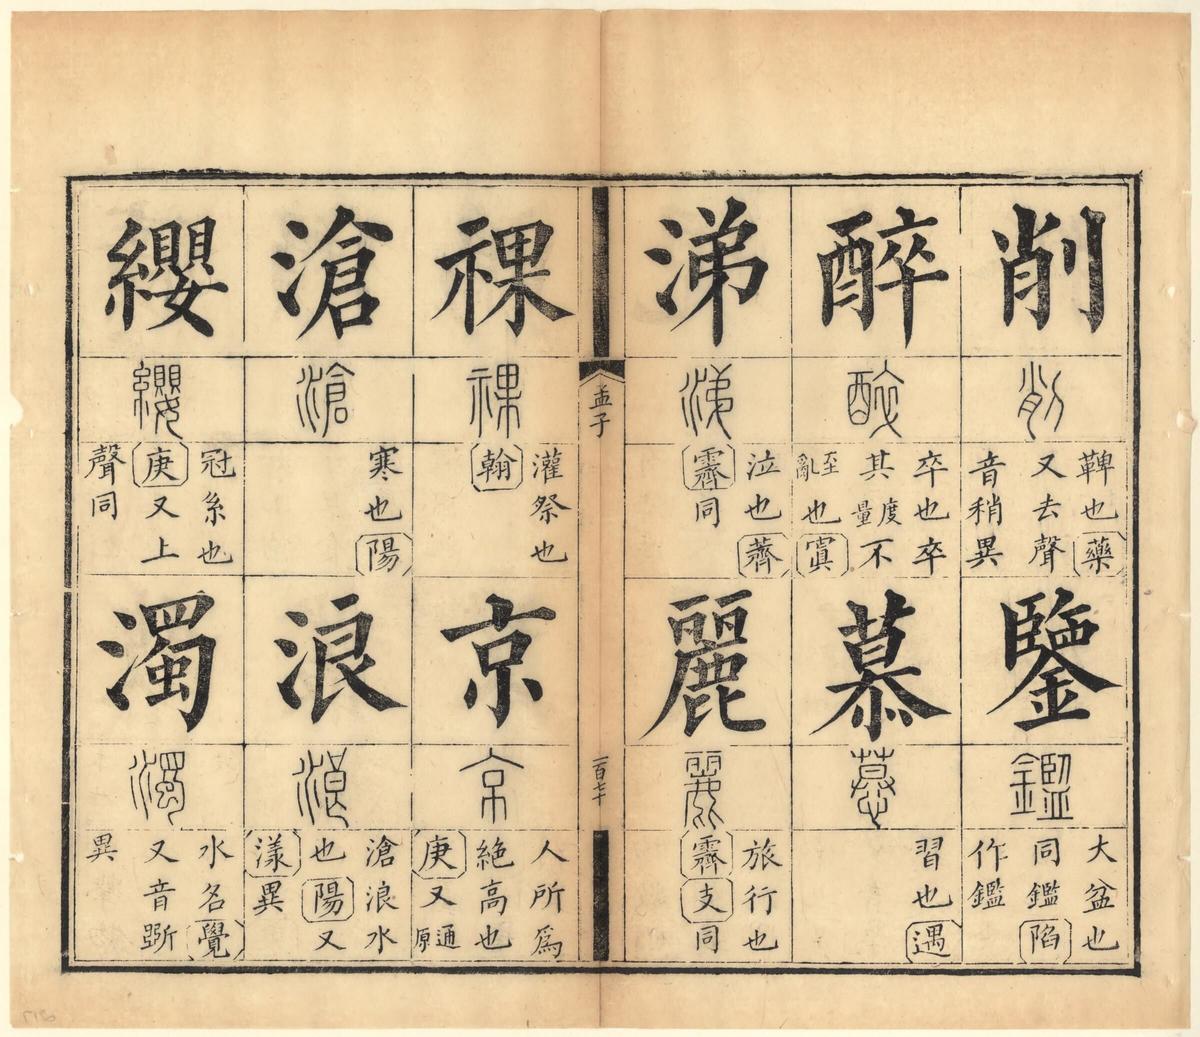 削
削
鞞也藥
又去聲
音稍異
鑒
鑑
大盆也
同鑑陷
作鑑
醉
醉
卒也卒
其度量不
至亂也寘
慕
慕
習也遇
涕
涕
泣也薺
霽同
麗
麗
旅行也
霽支同
孟子
一百七十
祼
祼
灌祭也
翰
京
京
人所爲
絶高也
庚又通原
滄
滄
寒也陽
浪
浪
滄浪水
也陽又
漾異
纓
纓
冠系也
庚又上
聲同
濁
濁
水名覺
又音斲
異